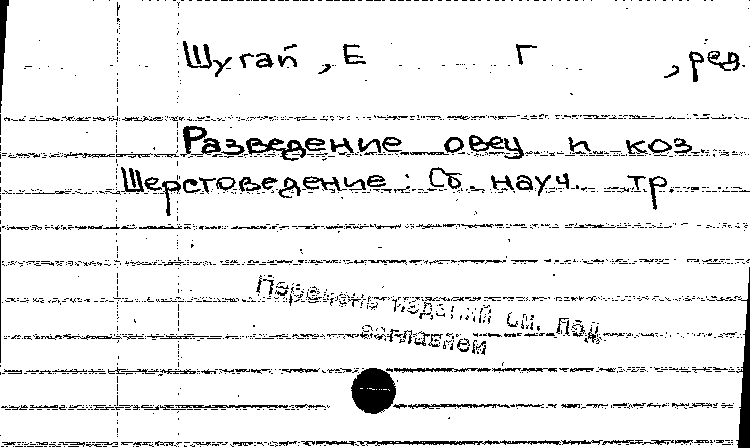 Шугай, Е Г , ред.
Разведение овец и коз.
Шерстоведение: Сб. науч. тр.
Перечень изданий см. под
заглавием